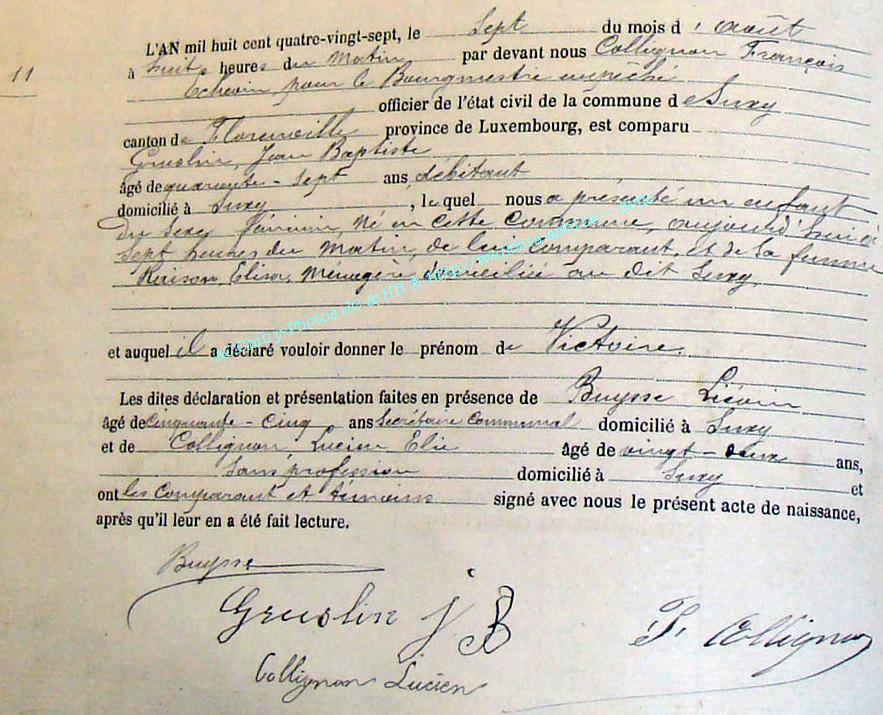 L'AN mil huit cent quatre-vingt-sept, le Sept du mois d'août
11
à huit heures du Matin par devant nous Collignon François
Echevin, pour le Bourgmestre empêché
officier de l'état civil de la commune de Suxy
canton de Florenville province de Luxembourg, est comparu
Gruslin, Jean Baptiste
âgé de quarante-sept ans, débitant
domicilié à Suxy, lequel nous a présenté un enfant
du sexe féminin, Né en cette commune, aujourd'hui à
sept heures du Matin, de lui comparant, et de sa femme
Raison, Elisa, Ménagère domiciliée au dit Suxy
et auquel il a déclaré vouloir donner le prénom de Victoire.
Les dites déclaration et présentation faites en présence de Buysse Liévin
âgé de Cinquante-Cinq ans Secrétaire Communal domicilié à Suxy
et de Collignon Lucien Elie âgé de vingt-deux ans,
Sans profession domicilié à Suxy et
ont les comparant et témoins signé avec nous le présent acte de naissance,
après qu'il leur en a été fait lecture.
Buysse
Gruslin J B
F. Collignon
Collignon Lucien